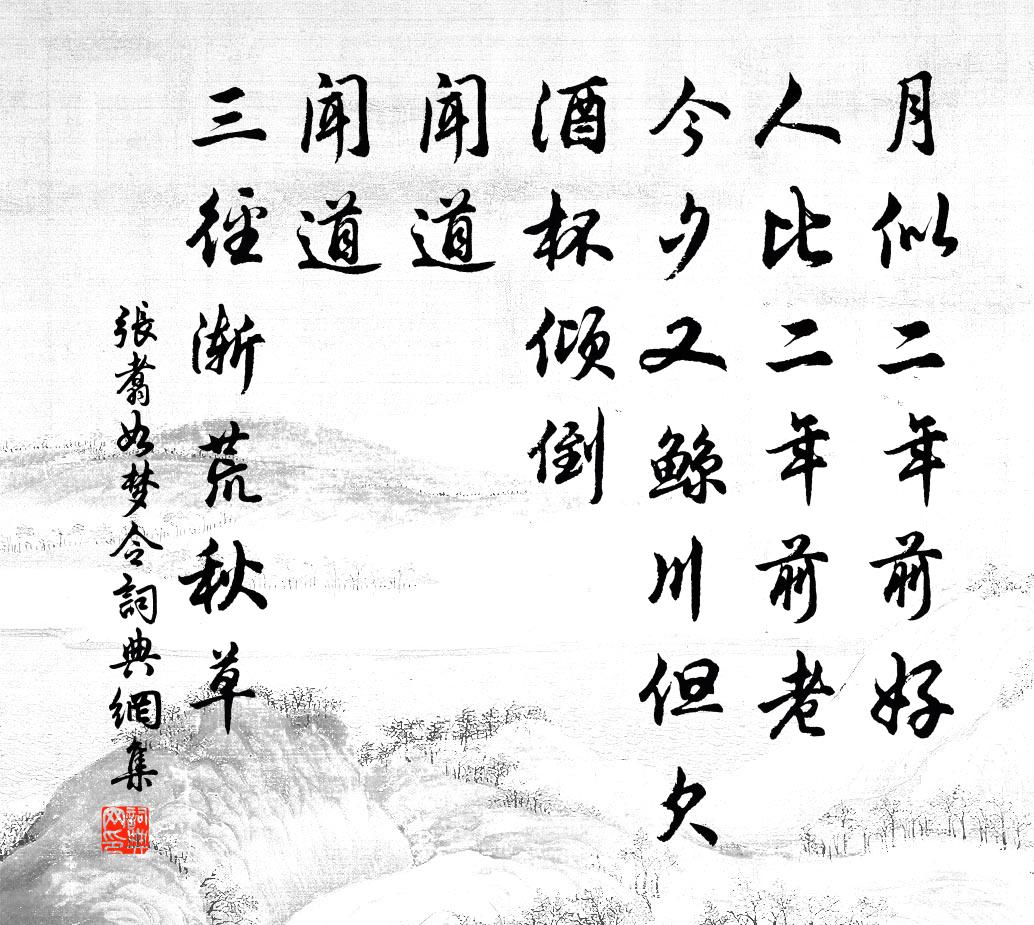 月似二年前好
人比二年前老
今夕又鲸川但欠
酒杯倾倒
闻道
闻道
三徑渐荒秋草
張翥如梦令詞典網集